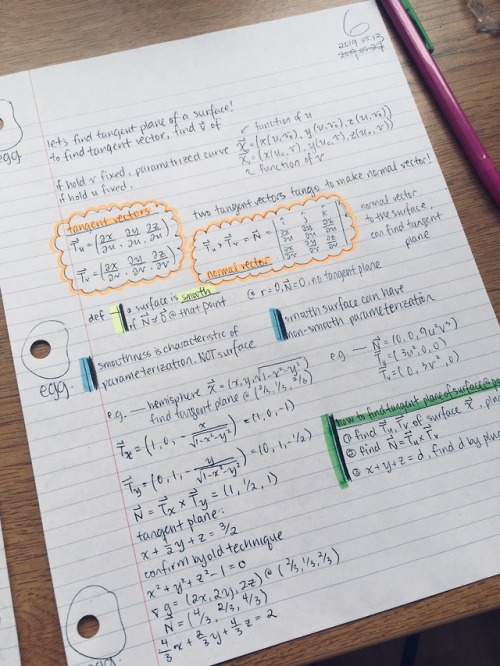 6
2019.05.13
2019.05.27
let's find tangent plane of a surface!
to find tangent vector, find v⃗ of
if hold v fixed, parametrized curve
if hold u fixed,
function of u
= (x(u,v₀), y(u,v₀), z(u,v₀))
= (x(u₀,v), y(u₀,v), z(u₀,v))
function of v
tangent vectors
T⃗u = (∂x/∂u, ∂y/∂u, ∂z/∂u)
T⃗v = (∂x/∂v, ∂y/∂v, ∂z/∂v)
two tangent vectors tango to make normal vector!
T⃗u × T⃗v = N⃗ = | i j k ; ∂x/∂u ∂y/∂u ∂z/∂u ; ∂x/∂v ∂y/∂v ∂z/∂v |
normal vector
normal vector
to the surface,
can find tangent
plane
def a surface is smooth
if N⃗ ≠ 0⃗ @ that point
@ r=0, N⃗=0⃗, no tangent plane
smoothness is characteristic of
parameterization, NOT surface
smooth surface can have
non-smooth parameterization
e.g. — N⃗ = (0, 0, 9u²v²)
T⃗u = (3u², 0, 0)
T⃗v = (0, 3v², 0)
egg.
egg.
e.g. — hemisphere x⃗ = (x, y, √1-x²-y²)
find tangent plane @ (2/3, 1/3, 2/3)
T⃗x = (1, 0, - x/√1-x²-y²) = (1, 0, -1)
T⃗y = (0, 1, - y/√1-x²-y²) = (0, 1, -1/2)
N⃗ = T⃗x × T⃗y = (1, 1/2, 1)
tangent plane:
x + 1/2 y + z = 3/2
confirm by old technique
x² + y² + z² - 1 = 0
∇g = (2x, 2y, 2z) @ (2/3, 1/3, 2/3)
N⃗ = (4/3, 2/3, 4/3)
4/3 x + 2/3 y + 4/3 z = 2
how to find tangent plane of surface @
① find T⃗u, T⃗v of surface x⃗, plug
② find N⃗ = T⃗u × T⃗v
③ x+y+z = d, find d by plug